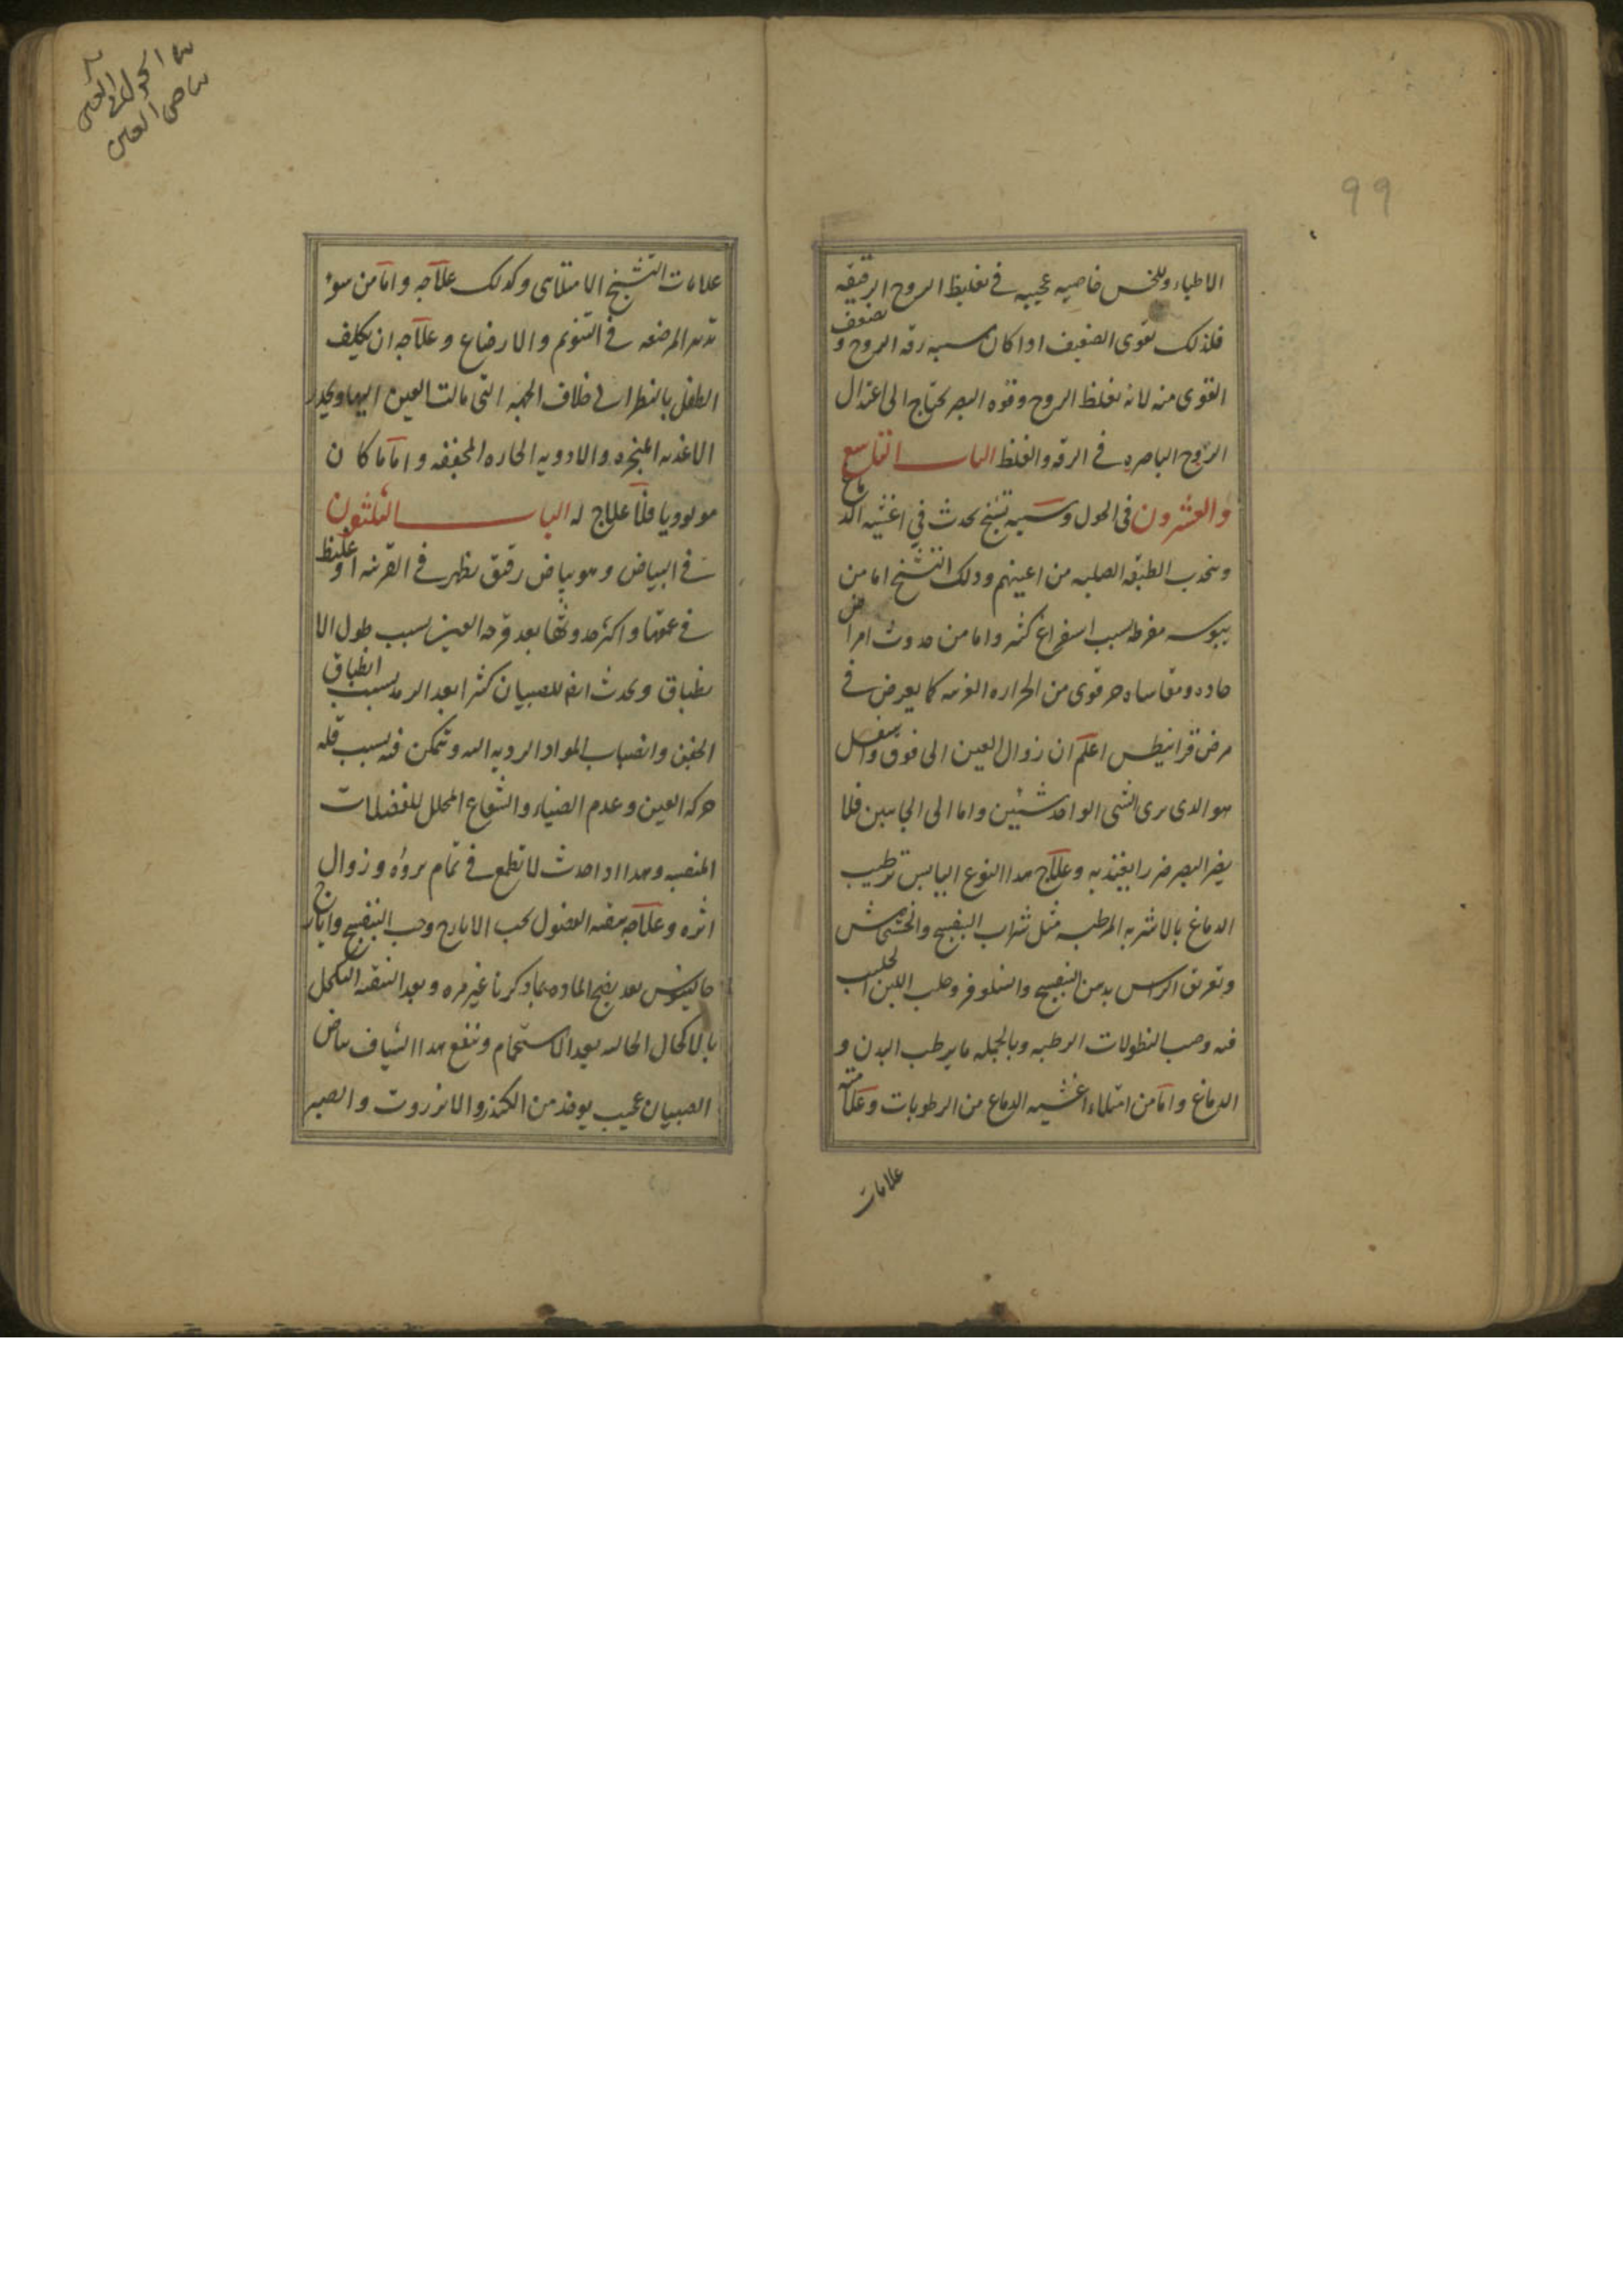 99
الاطباء وللخس خاصيه عجيبه فى تغليظ الروح الرقيقه
فلذلك تقوى الضعيف اذا كان سببه رقه الروح و تضعف
القوى منه لانه تغلظ الروح وقوه البصر يحتاج الى اعتدال
الروح الباصره فى الرقه والغلظ الباب التاسع
والعشرون فى الحول وسببه تشنج يحدث فى اغشيه الدماغ
وينجذب الطبقه الصلبه من اعينهم وذلك التشنج اما من
يبوسه مفرطه بسبب استفراغ كثير واما من حدوث امراض
حاده ومقاساه حر قوى من الحراره الغريبه كما يعرض فى
مرض قرانيطس اعلم ان زوال العين الى فوق واسفل
هو الذى يرى الشى الواحد شيئين واما الى الجانبين فلا
يضر البصر ضررا يعتد به وعلاج هذا النوع اليابس ترطيب
الدماغ بالاشربه المرطبه مثل شراب البنفسج والخشخاش
وتعريق الراس بدهن البنفسج والنيلوفر وحلب اللبن الحليب
فيه وصب النطولات الرطبه وبالجمله ما يرطب البدن و
الدماغ واما من امتلاء اغشيه الدماغ من الرطوبات وعلامته
علامات
بياض العين
علامات التشنج الامتلائى وكذلك علاجه واما من سوء
تدبير المرضعه فى التنويم والارضاع وعلاجه ان يكلف
الطفل بالنظر الى خلاف الجهه التى مالت العين اليها ويحذر
الاغذيه المبخره والادويه الحاره المجففه واما ما كان
مولوديا فلا علاج له الباب الثلثون
فى البياض وهو بياض رقيق يظهر فى القرنيه او غليظ
فى عمقها واكثر حدوثها بعد قرحه العين بسبب طول الا
نطباق ويحدث ايضا للصبيان كثيرا بعد الرمد بسبب انطباق
الجفن وانصباب المواد الرديه اليه وتتمكن فيه بسبب قله
حركه العين وعدم الضياء والشعاع المحلل للفضلات
المنصبه وهذا اذا حدث لا تطمع فى تمام بروءه وزوال
اثره وعلاجه تنقيه الفضول بحب الايارج وحب البنفسج وايارج
جالينوس بعد نضج الماده بما ذكرنا غير مره وبعد التنقيه التكحل
بالاكحال الجاليه بعد الاستحمام وينفع هذا الشياف بياض
الصبيان عجيب يوخذ من الكندر والانزروت والصبر